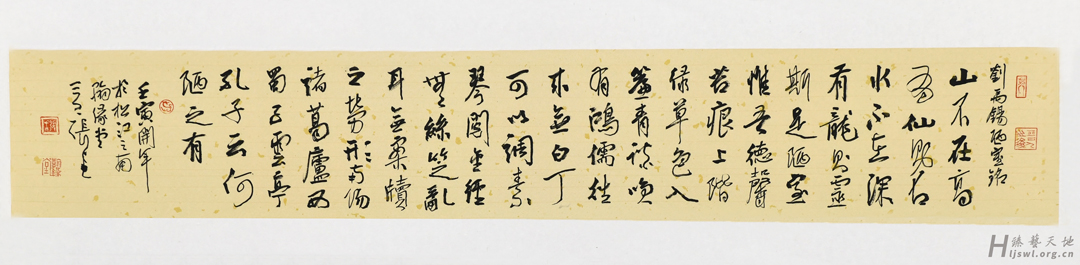 劉禹錫陋室銘
山不在高
有仙則名
水不在深
有龍則靈
斯是陋室
惟吾德馨
苔痕上階
緑草色入
簾青談笑
有鴻儒往
来無白丁
可以調素
琴閲金經
無絲竹之亂
耳無案牘
之勞形南陽
諸葛廬西
蜀子雲亭
孔子云何
陋之有
壬寅開年
於松江之南
臻藝天地
Hljswl.org.cn